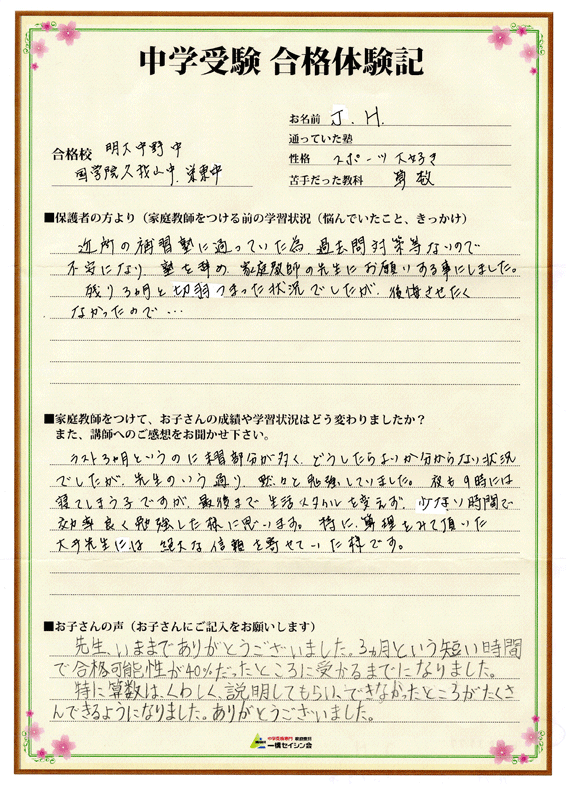 中学受験 合格体験記
お名前 J. H.
通っていた塾
合格校 明大中野中
国学院久我山中、栄東中
性格 スポーツ大好き
苦手だった教科 算数
■保護者の方より（家庭教師をつける前の学習状況（悩んでいたこと、きっかけ）
近所の補習塾に通っていた為、過去問対策等ないので
不安になり、塾を辞め、家庭教師の先生にお願いする事にしました。
残り3ヵ月と切羽つまった状況でしたが、後悔させたく
なかったので…
■家庭教師をつけて、お子さんの成績や学習状況はどう変わりましたか？
また、講師へのご感想をお聞かせ下さい。
ラスト3ヶ月というのに未習部分が多く、どうしたらよいか分からない状況
でしたが、先生のいう通り、黙々と勉強していました。夜も9時には
寝てしまう子ですが、最後まで生活スタイルを変えず、少ない時間で
効率良く勉強した様に思います。特に、算理をみて頂いた
先生には 絶大な信頼を寄せていた様です。
■お子さんの声（お子さんにご記入をお願いします）
先生、いままでありがとうございました。3ヵ月という短い時間
で合格可能性が40%だったところに受かるまでになりました。
特に算数は、くわしく、説明してもらい、できなかったところがたくさ
んできるようになりました。ありがとうございました。
中学受験専門 家庭教師
一橋セイシン会